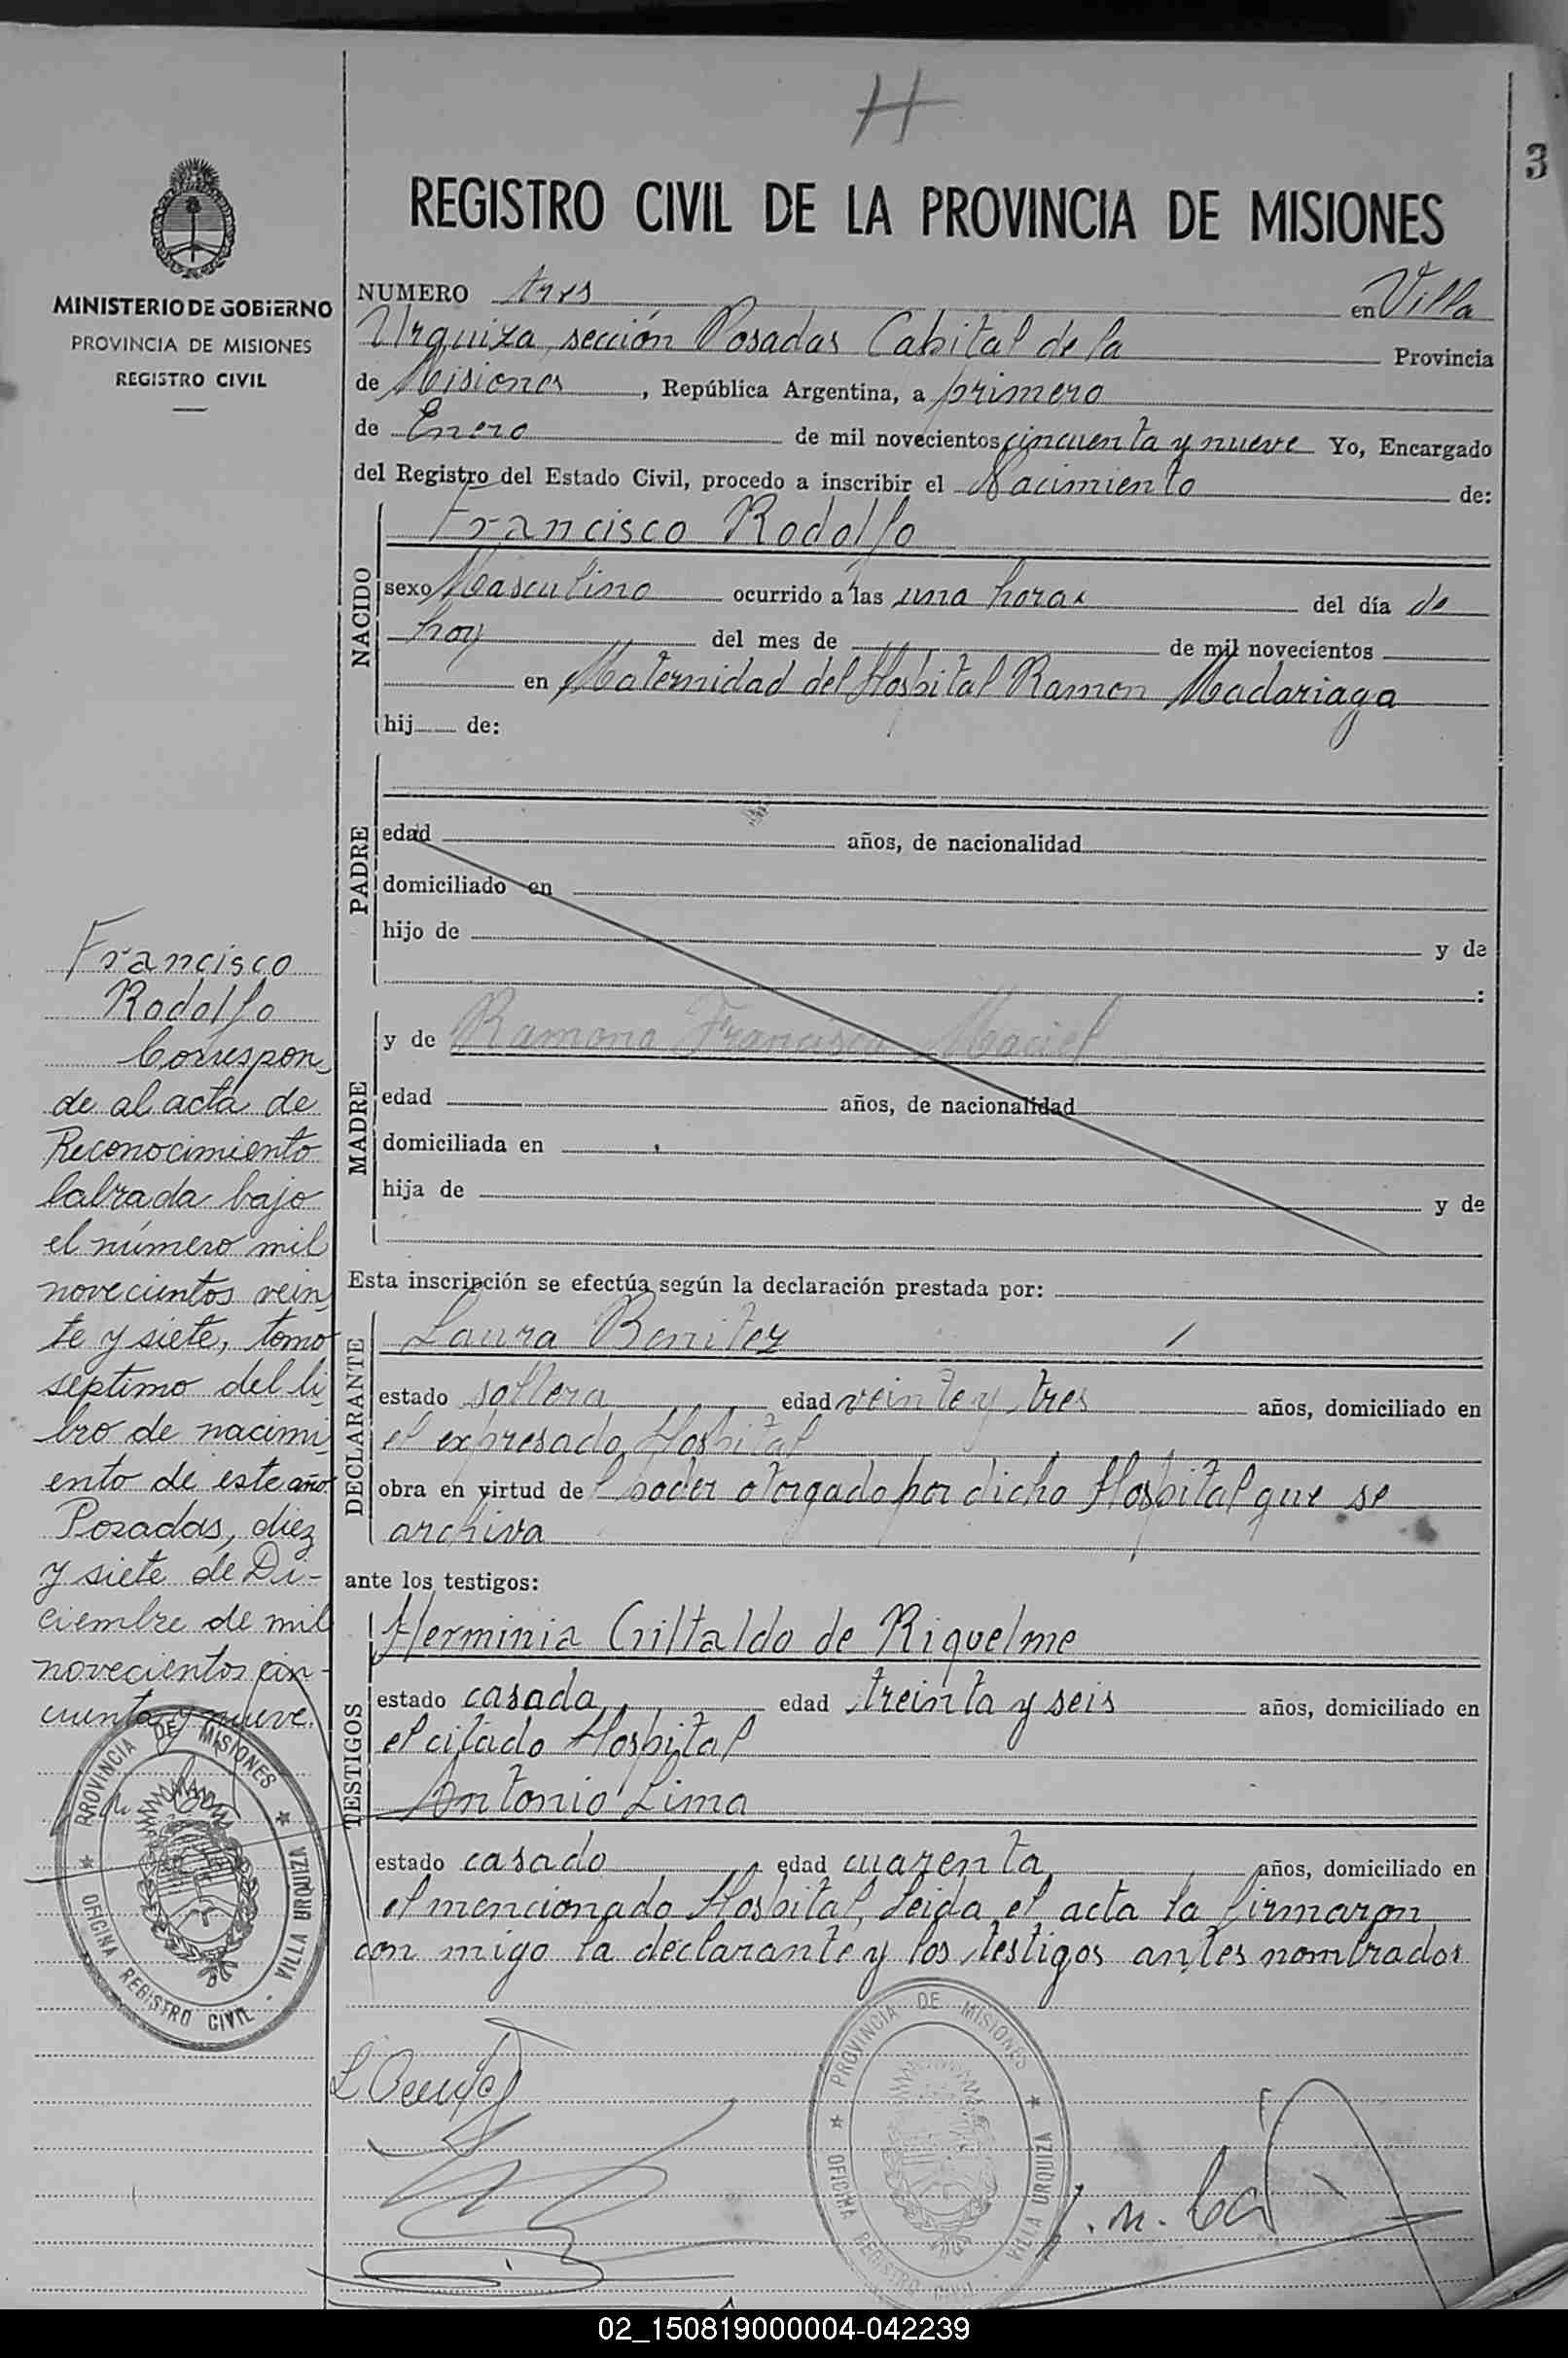 H
3
REGISTRO CIVIL DE LA PROVINCIA DE MISIONES
MINISTERIO DE GOBIERNO
PROVINCIA DE MISIONES
REGISTRO CIVIL
NUMERO tres en Villa
Urquiza, sección Posadas Capital de la Provincia
de Misiones, República Argentina, a primero
de Enero de mil novecientos cincuenta y nueve Yo, Encargado
del Registro del Estado Civil, procedo a inscribir el Nacimiento de:
NACIDO
Francisco Rodolfo
sexo Masculino ocurrido a las una horas del día de
hoy del mes de de mil novecientos
en Maternidad del Hospital Ramon Madariaga
hij de:
PADRE
edad años, de nacionalidad
domiciliado en
hijo de y de
:
MADRE
y de Ramona Francisca Maciel
edad años, de nacionalidad
domiciliada en
hija de y de
Esta inscripción se efectúa según la declaración prestada por:
DECLARANTE
Laura Benitez
estado soltera edad veinte y tres años, domiciliado en
el expresado Hospital
obra en virtud del poder otorgado por dicho Hospital que se
archiva
ante los testigos:
TESTIGOS
Herminia Giltaldo de Riquelme
estado casada edad treinta y seis años, domiciliado en
el citado Hospital
Antonio Lima
estado casado edad cuarenta años, domiciliado en
el mencionado Hospital, leida el acta la firmaron
con migo la declarante y los testigos antes nombrados
Francisco
Rodolfo
Correspon
de al acta de
Reconocimiento
labrada bajo
el número mil
novecientos vein
te y siete, tomo
séptimo del li
bro de nacimi
ento de este año
Posadas, diez
y siete de Di-
ciembre de mil
novecientos cin-
cuenta y nueve.
PROVINCIA DE MISIONES
OFICINA REGISTRO CIVIL · VILLA URQUIZA
PROVINCIA DE MISIONES
OFICINA REGISTRO CIVIL · VILLA URQUIZA
02_150819000004-042239